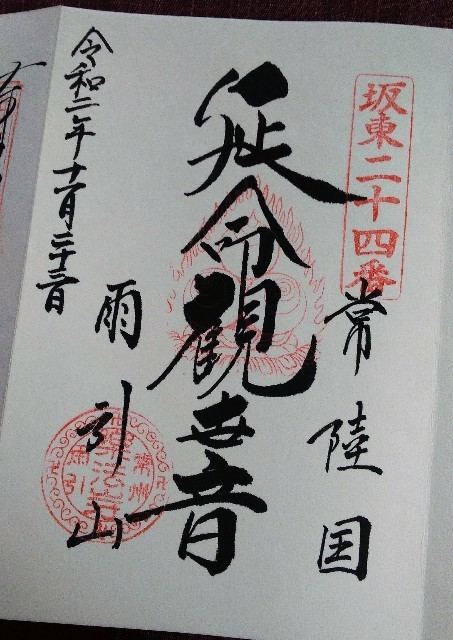 坂東二十四番
常陸国
延命観世音
雨引山
令和二年十一月二十三日